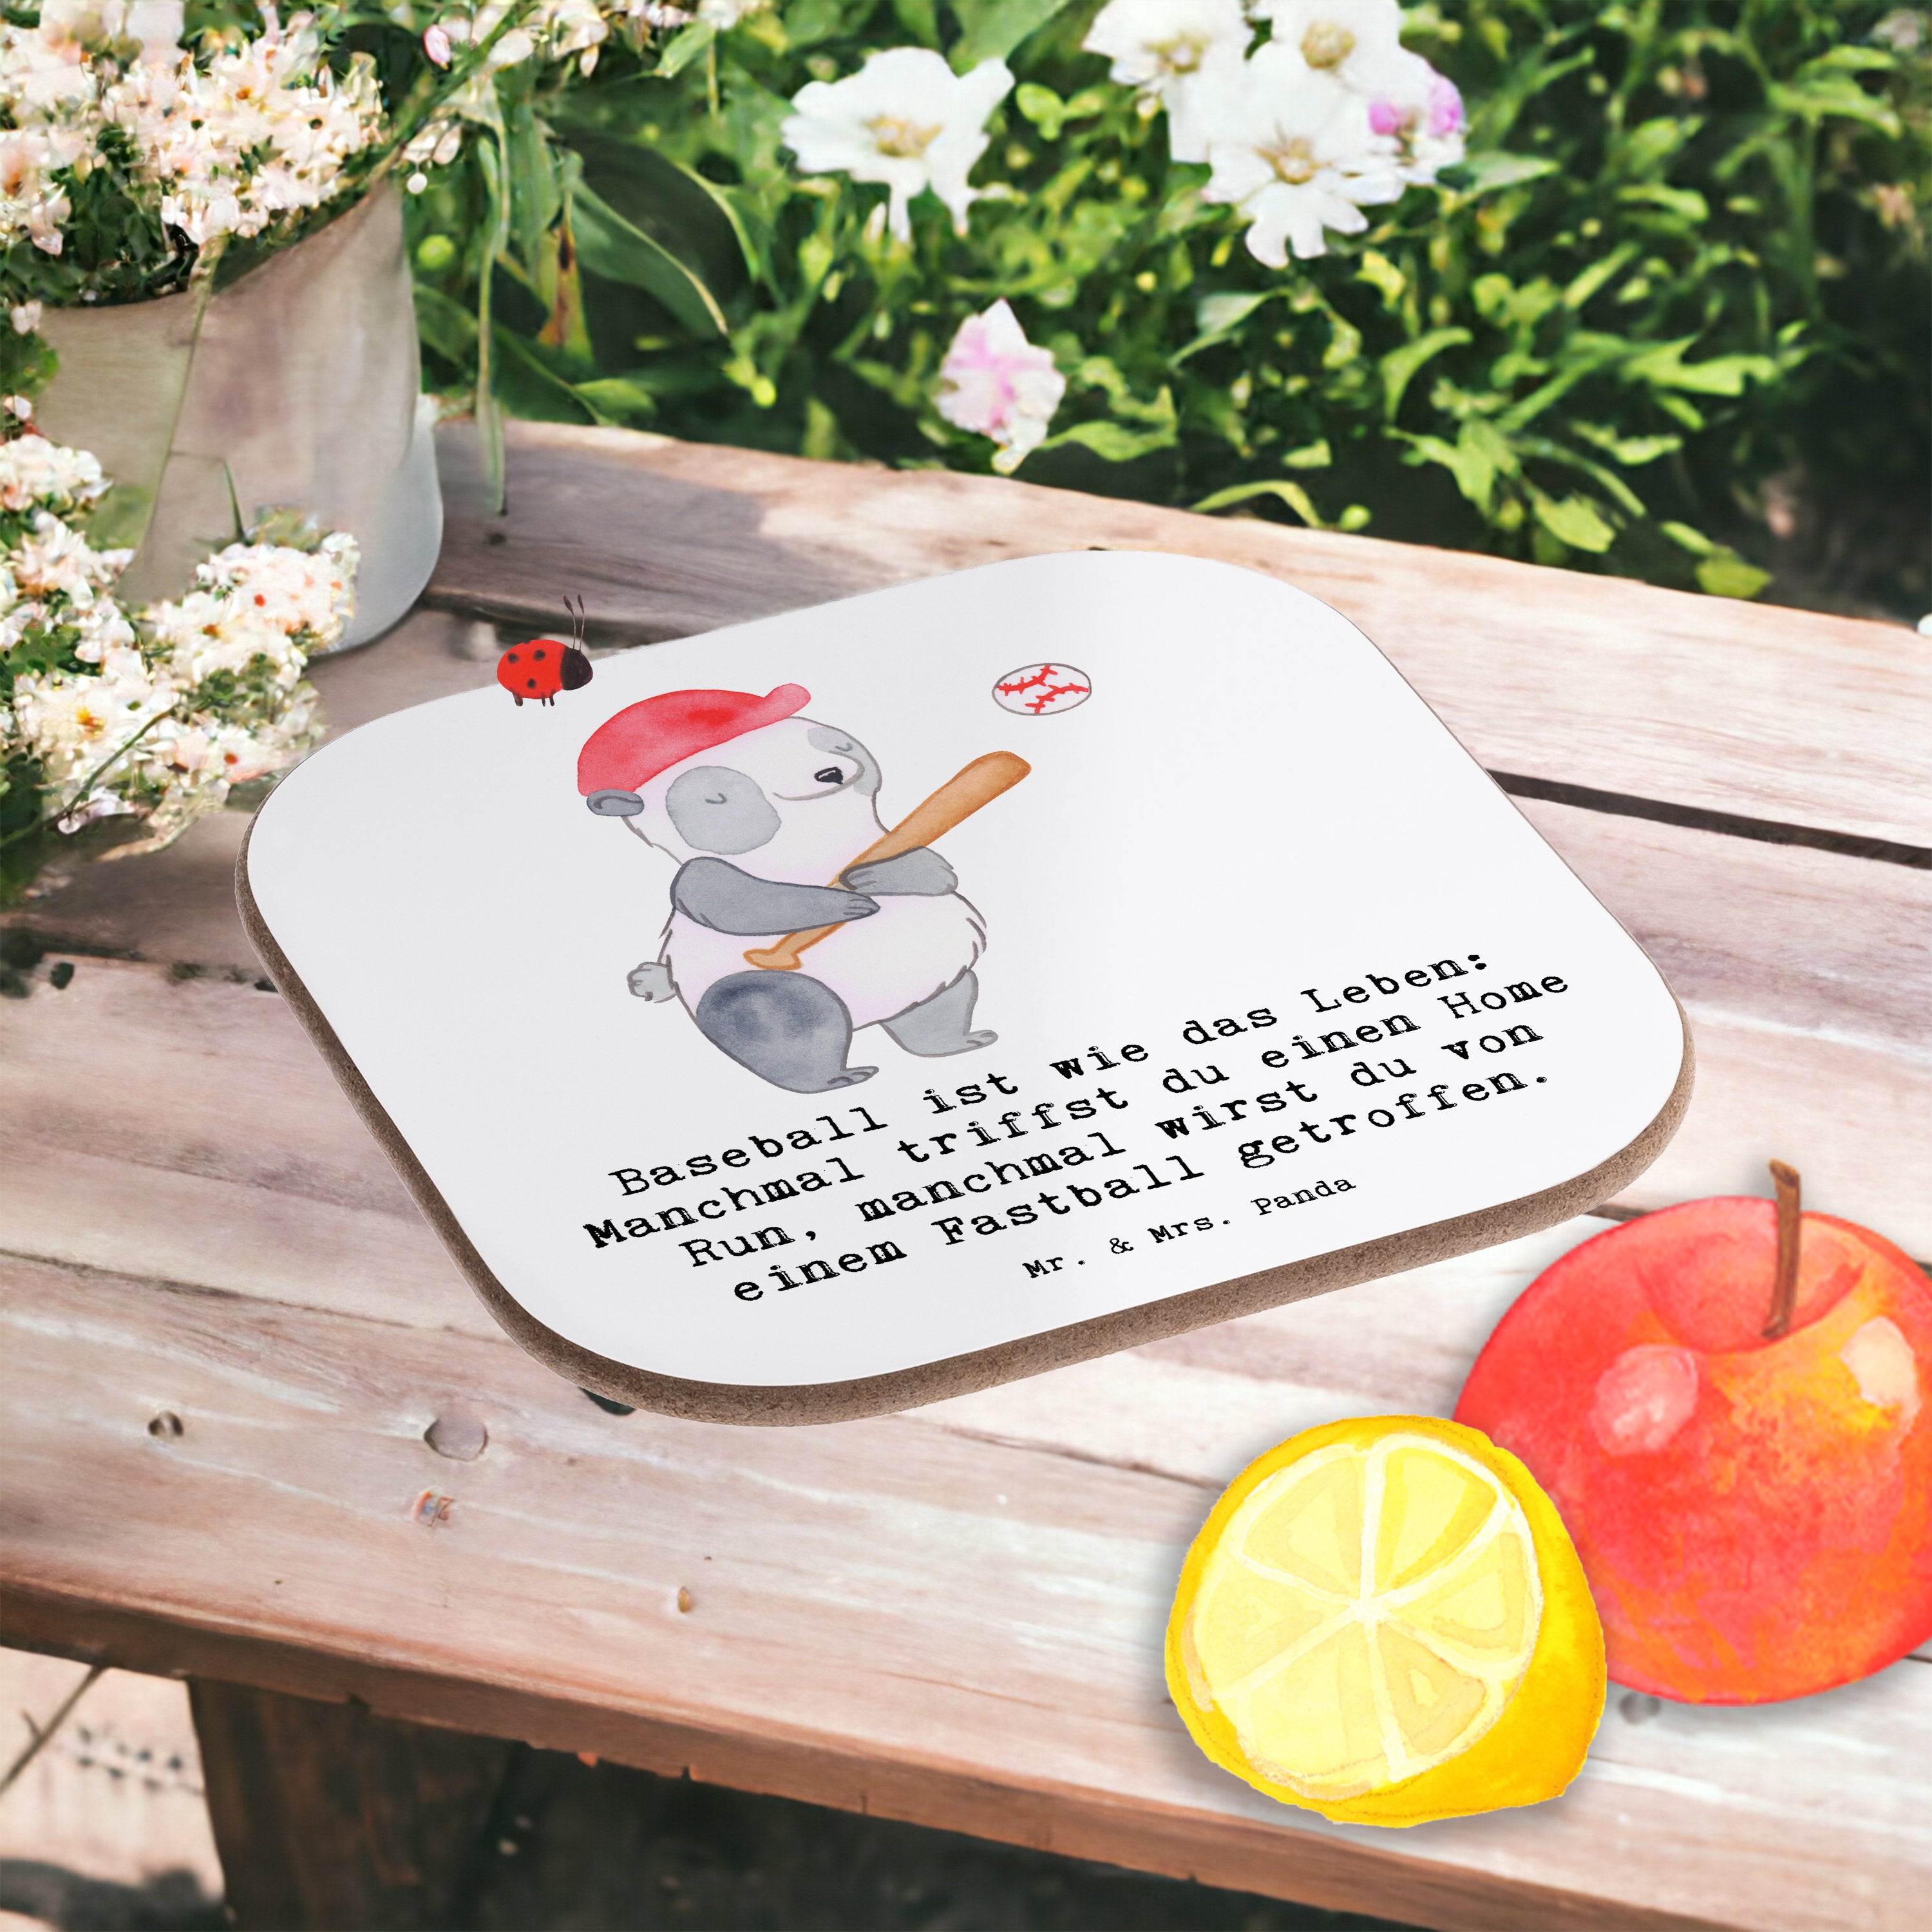 Baseball ist wie das Leben:
Manchmal triffst du einen Home
Run, manchmal wirst du von
einem Fastball getroffen.
Mr. & Mrs. Panda